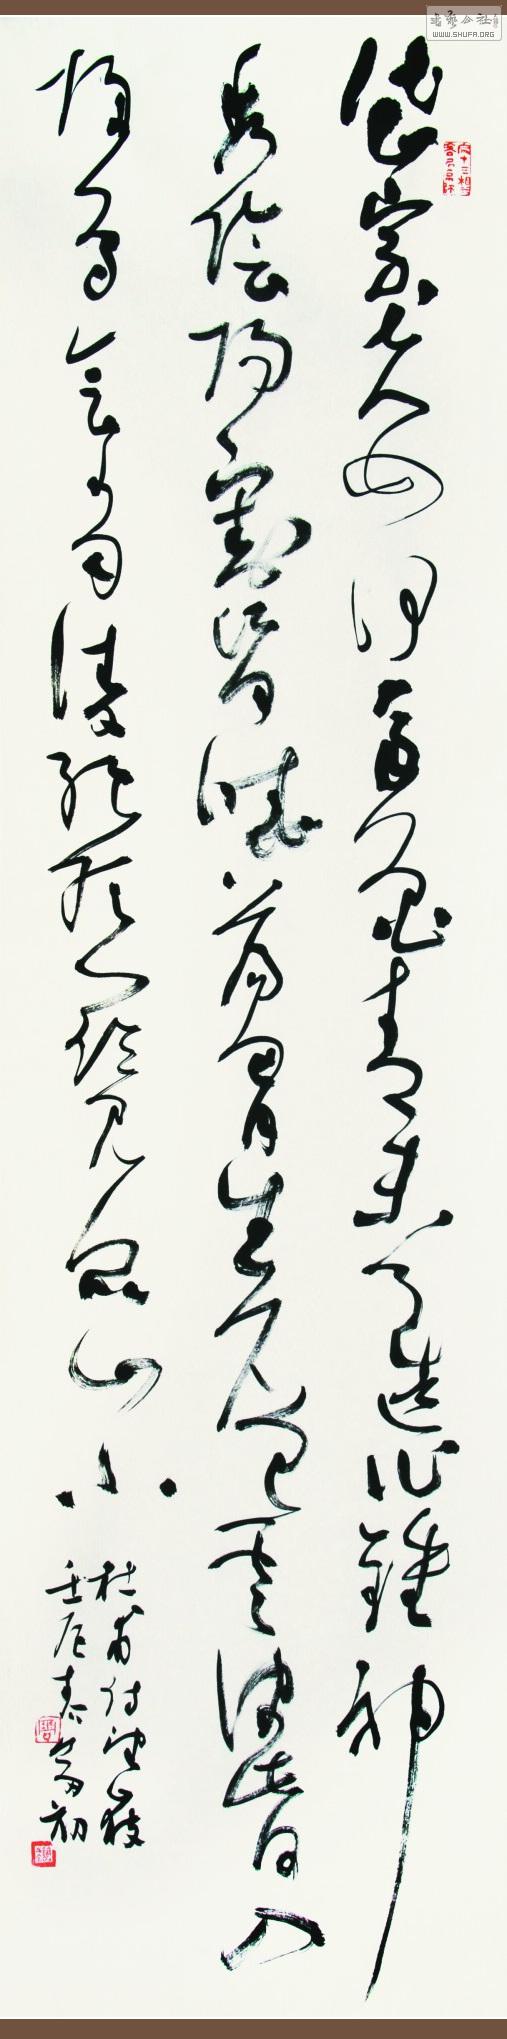 岱宗夫如何齐鲁青未了造化钟神
秀阴阳割昏晓荡胸生层云决眦入
归鸟会当凌绝顶一览众山小
杜甫诗望岳
壬辰春
WWW.SHUFA.ORG